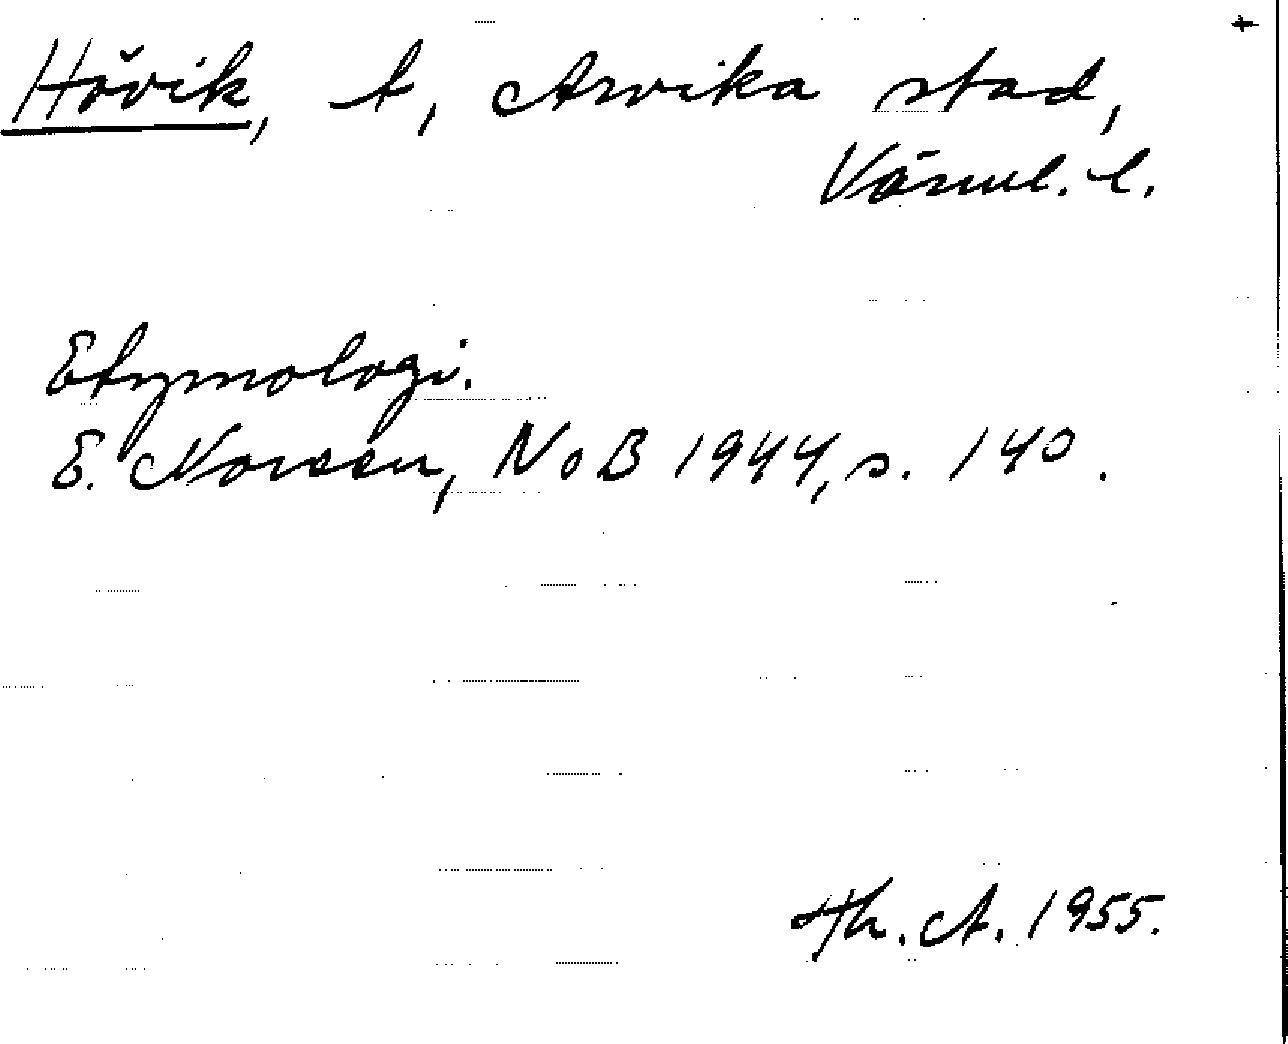 +
Hövik, t, Arvika stad,
Värml. l.
Etymologi.
E. Noreen, NoB 1944, s. 140.
Th. A. 1955.